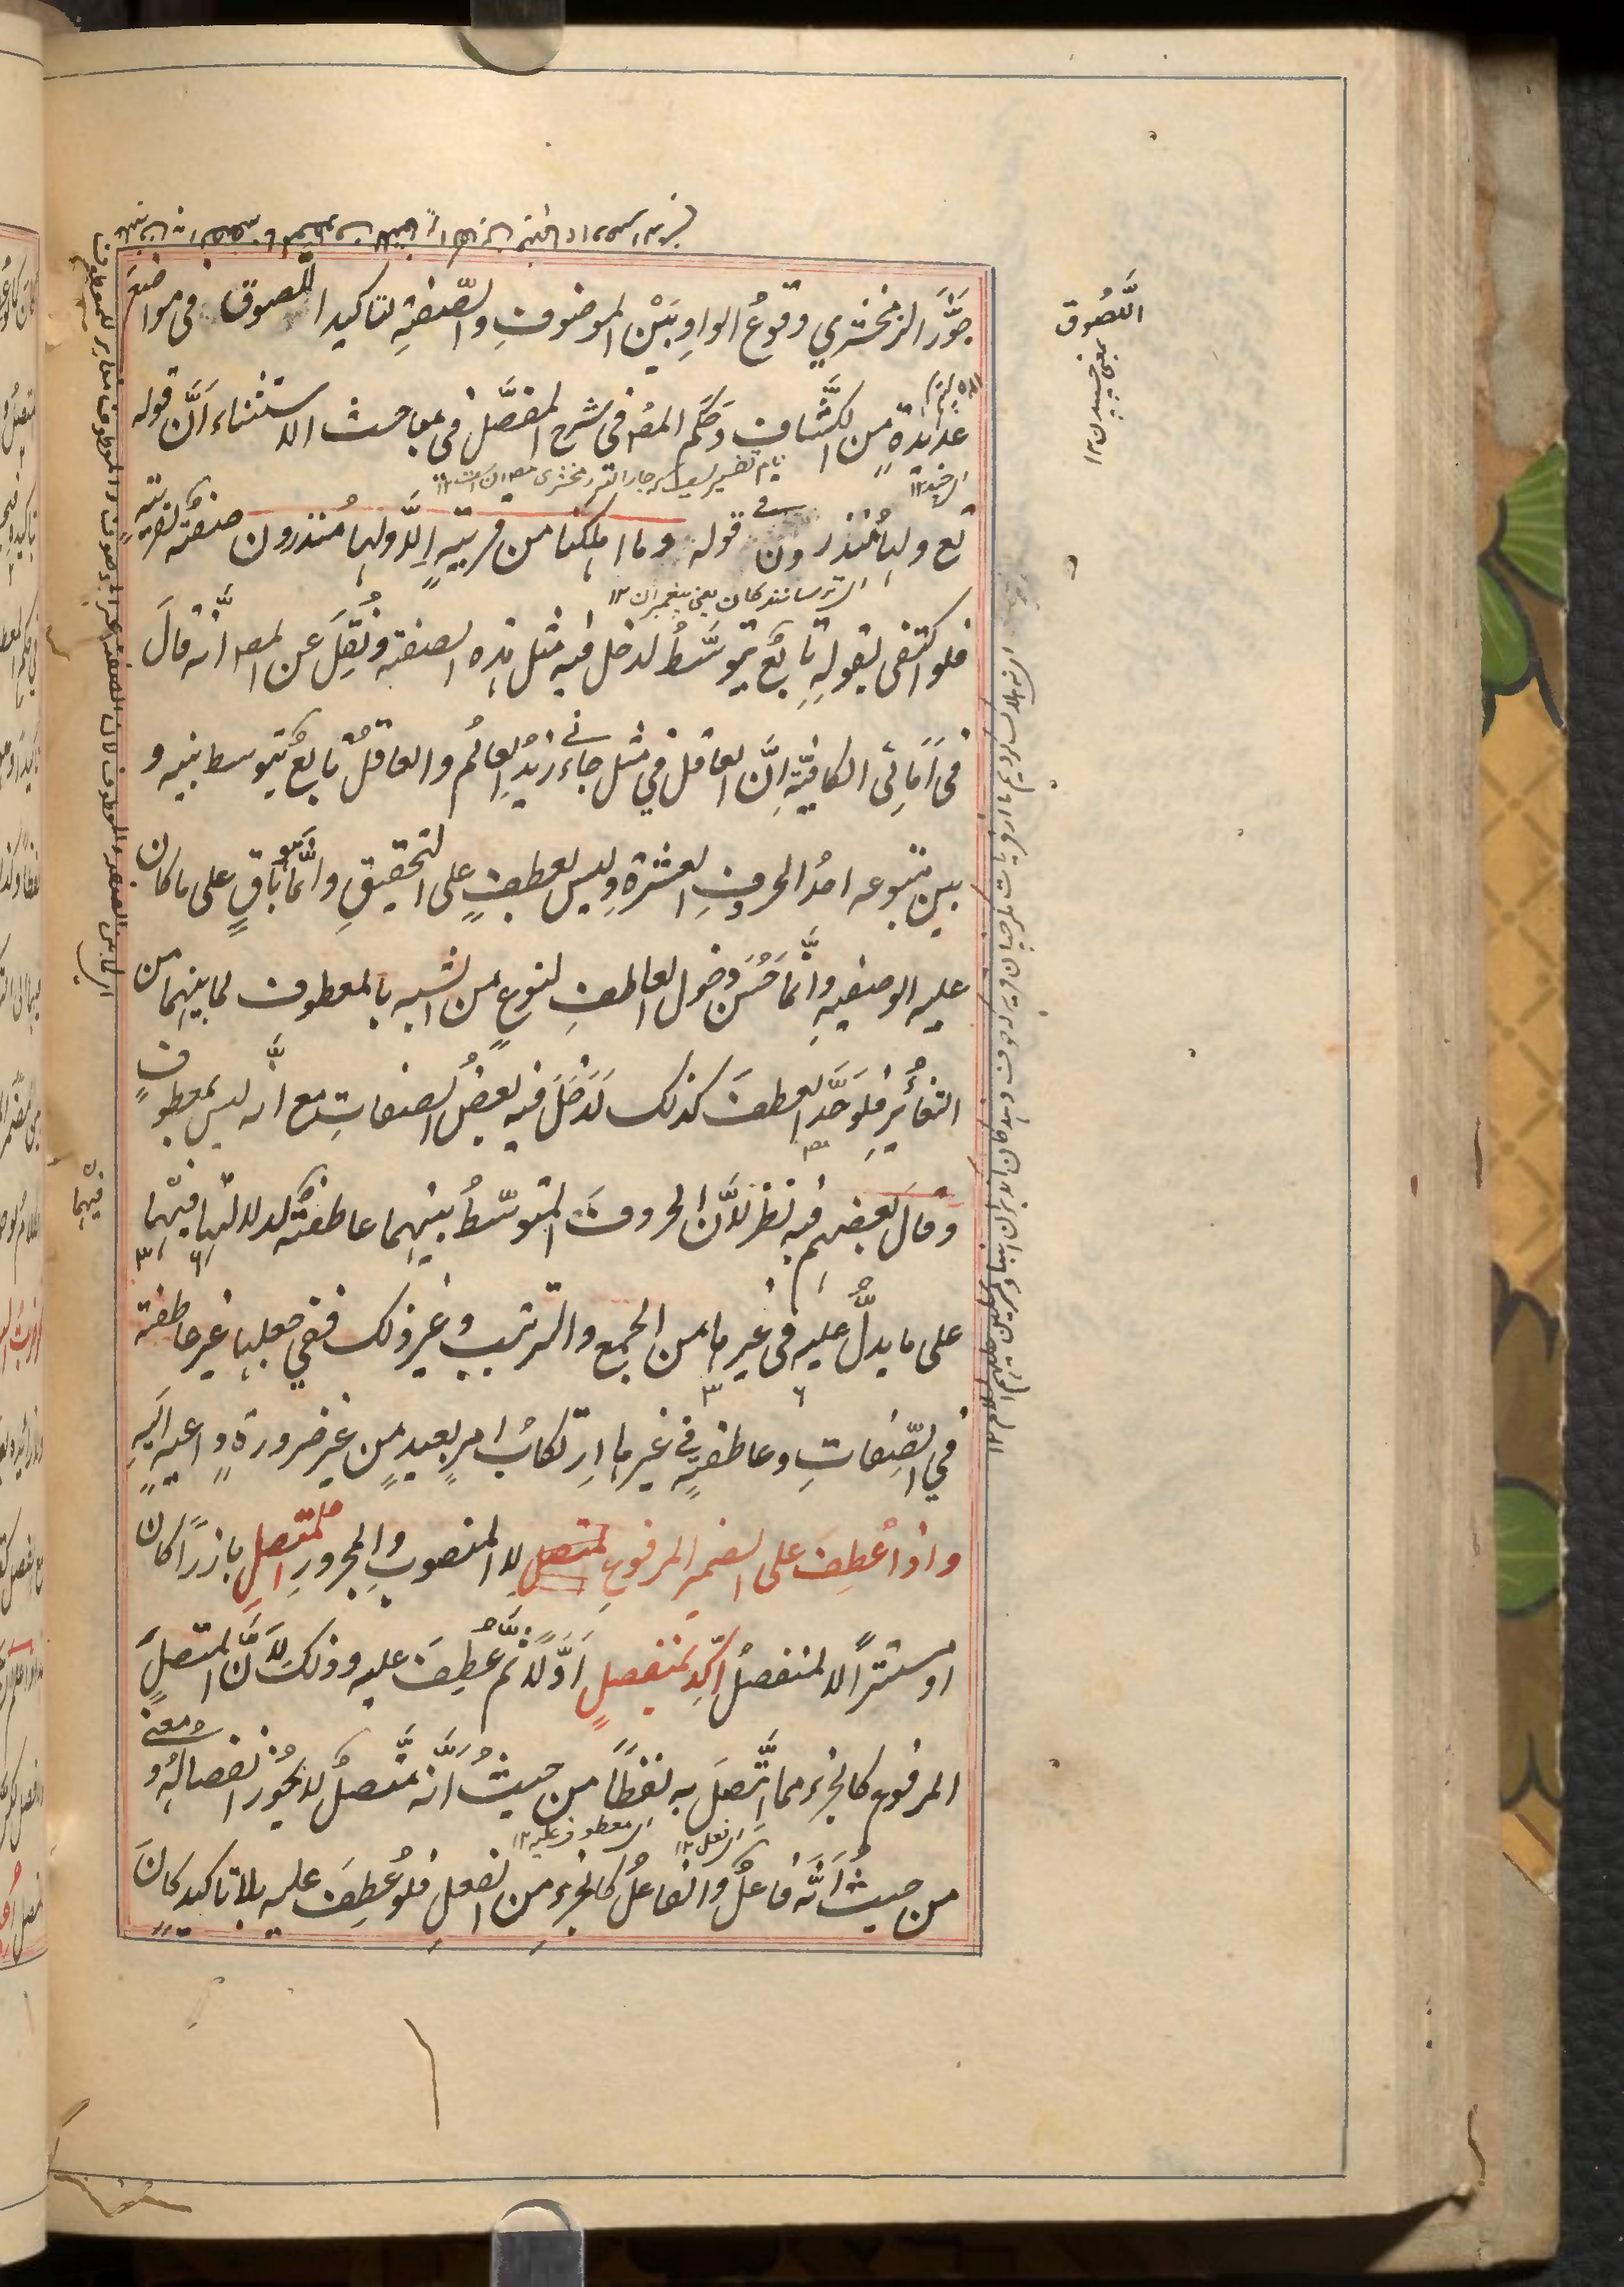 جَوَّزَ الزمخشري وقوعُ الواوِ بَيْنَ الموصوفِ والصّفةِ لتاكيد اللصوق فى مواضعَ
عديدةٍ من الكشّاف وحَكَم المصـ فى شرح المفصَّل فى مباحث الاستثناء أنَّ قوله
تع ولها مُنذرون فى قوله وما اهلكنا من قرية إلَّا ولها مُنذرون صفةٌ لقريةٍ
فلو اكتفى بقولهِ تابعٌ يتوسَّطُ لدخل فيه مثل هذه الصفة ونُقِلَ عن المصـ انَّه قالَ
فى اَمَالِى الكافيّةِ اِنَّ العاقل فى مثل جاءنى زيدُ العالمُ والعاقلُ تابعٌ يتوسط بينه و
بين متبوعه احدُ الحروفِ العشرةِ وليس بعطفٍ على التحقيقِ وانَّما هو باقٍ على ما كان
عليه الوصفيةِ وانَّما حَسُنَ دخول العاطفِ لنوعٍ من الشبه بالمعطوف لما بينهما من
التغايُرِ فلو حَدَّ العطفَ كذلك لَدَخَلَ فيه بعضُ الصفاتِ مع انَّه ليس بمعطوفٍ
وقال بعضهم فيه نظرٌ لأنَّ الحروفَ المتوسّطُ بينهما عاطفةٌ لدلالتها فيها
على ما يدلُّ عليه فى غيرها من الجمع والترتيب وغير ذلك ففى جعلها غير عاطفة
فى الصّفاتِ وعاطفةٍ فى غيرها ارتكابُ امرٍ بعيدٍ من غير ضرورةٍ داعيةٍ اليهِ
واذا عُطِفَ على الضمير المرفوعِ المتصلِ لا المنصوبِ والمجرورِ المتصلِ بارزًا كان
او مستترًا لا المنفصلُ اُكِّدَ بمنفصلٍ اَوَّلًا ثُمَّ عُطِفَ عليه وذلك لأنَّ المتصلَ
المرفوع كالجزء مما اتَّصَلَ به لفظًا من حيثُ انَّه متَّصلٌ لا يجوز انفصالُهُ ومعنى
من حيثُ اَنَّه فاعلٌ والفاعلُ كالجزءِ من الفعلِ فلو عُطِفَ عليه بلا تاكيدٍ كانَ
اللَّصُوق
بمعنى چسپیدن ١٢
اى ترسانندكان يعنى پيغمبران ١٢
اى معطوف عليه ١٢
اى فعل ١٢